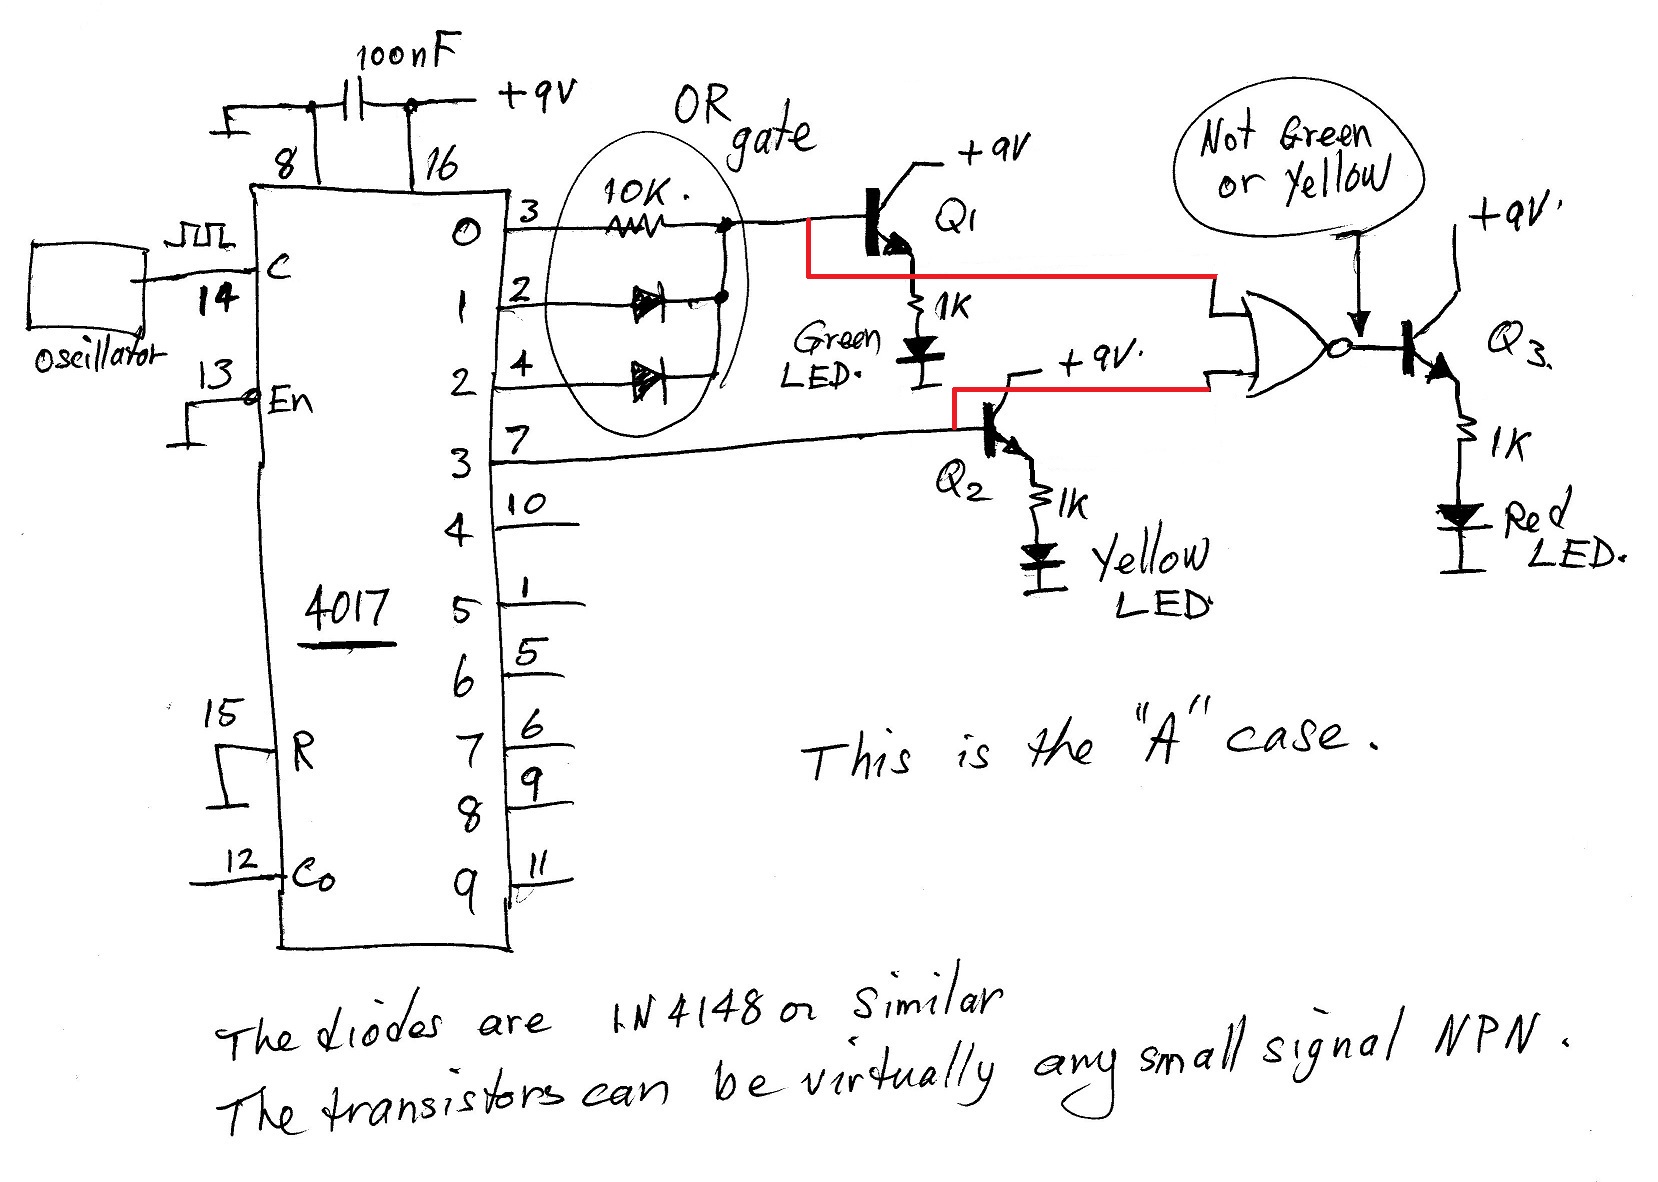 100nF
+9V
OR
gate
8
16
10K.
+9V
Q1
Not Green
or Yellow
+9V.
3
0
C
14
oscillator
2
1
1K
Green
LED.
Q3.
4
2
13
En
+9V.
7
3
Q2
1K
1K
10
4
Red
LED.
Yellow
LED.
4017
1
5
5
6
15
R
6
7
This is the "A" case.
9
8
12
Co
11
9
The diodes are 1N4148 or similar
The transistors can be virtually any small signal NPN.